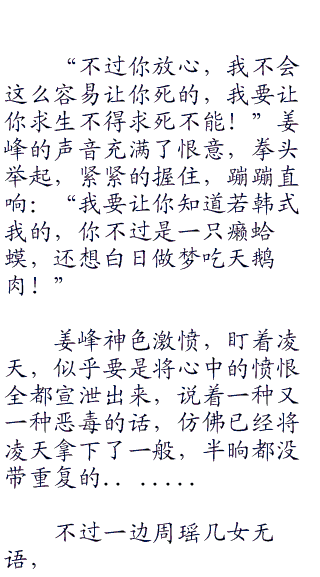 “不过你放心，我不会
这么容易让你死的，我要让
你求生不得求死不能！”姜
峰的声音充满了恨意，拳头
举起，紧紧的握住，蹦蹦直
响：“我要让你知道若韩式
我的，你不过是一只癞蛤
蟆，还想白日做梦吃天鹅
肉！”
姜峰神色激愤，盯着凌
天，似乎要是将心中的愤恨
全都宣泄出来，说着一种又
一种恶毒的话，仿佛已经将
凌天拿下了一般，半晌都没
带重复的．．．．．．．
不过一边周瑶几女无
语，